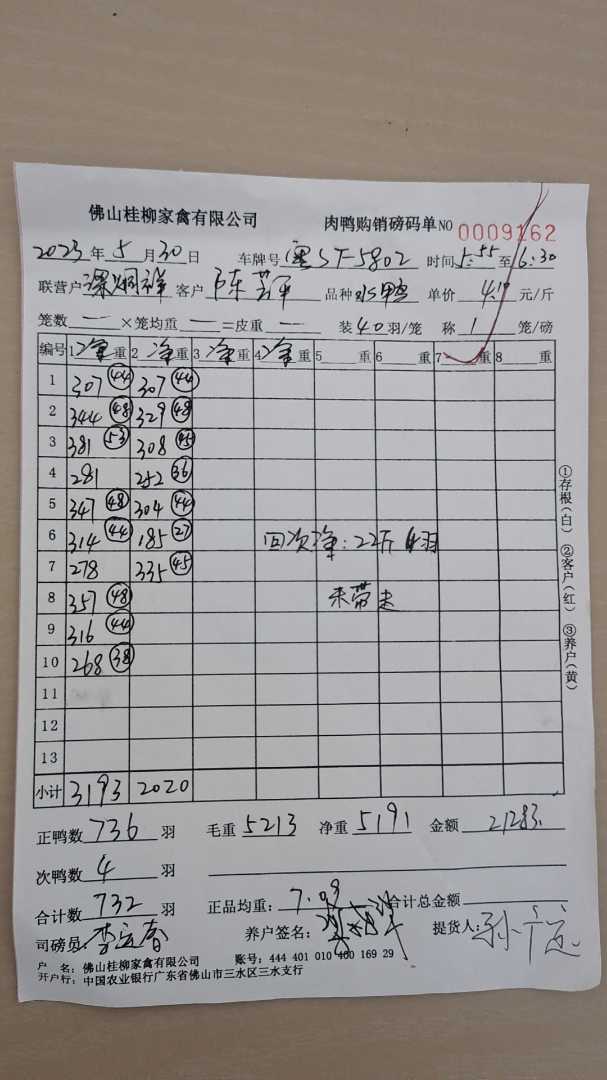 佛山桂柳家禽有限公司 肉鸭购销磅码单NO 0009162
2023年5月30日 车牌号 粤ST-5802 时间 5:55至6:30
联营户 梁炯祥 客户 陈 品种 水鸭 单价 4.10 元/斤
笼数 — ×笼均重 — =皮重 — 装40羽/笼 称 1 笼/磅
编号 1净重 2净重 3净重 4净重 5 重 6 重 7 重 8 重
1 307 (44) 307 (44)
2 344 (48) 329 (48)
3 381 (53) 308 (45)
4 281 252 (36)
5 347 (48) 304 (44)
6 314 (44) 185 (27) 回次净:22斤 4羽
7 278 335 (45)
8 357 (48) 未带走
9 316 (44)
10 268 (38)
11
12
13
小计 3193 2020
正鸭数 736 羽 毛重 5213 净重 5191 金额 21283.
次鸭数 4 羽
合计数 732 羽 正品均重: 7.09 合计总金额
司磅员: 养户签名: 提货人:
户 名:佛山桂柳家禽有限公司 账号:444 401 010 400 169 29
开户行:中国农业银行广东省佛山市三水区三水支行
①存根(白) ②客户(红) ③养户(黄)